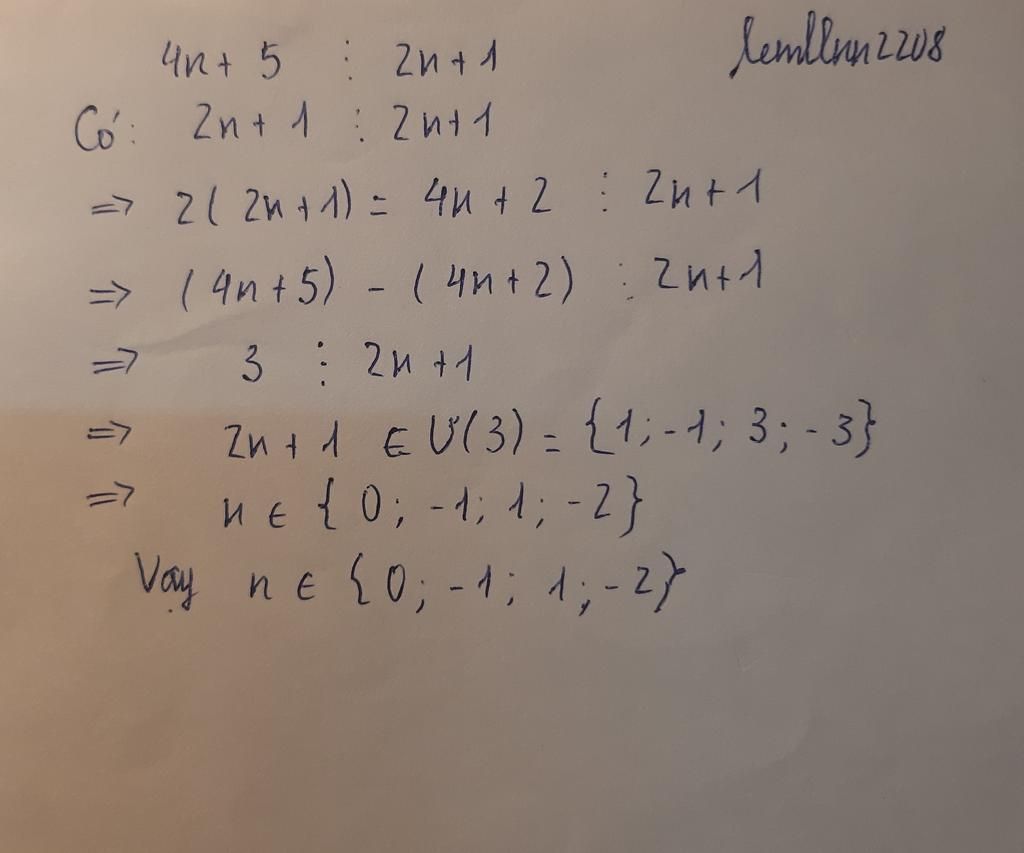 4n + 5 ⋮ 2n + 1
lemllnn2208
Có: 2n + 1 ⋮ 2n + 1
=> 2( 2n + 1) = 4n + 2 ⋮ 2n + 1
=> (4n + 5) - (4n + 2) ⋮ 2n + 1
=> 3 ⋮ 2n + 1
=> 2n + 1 ∈ Ư(3) = {1; -1; 3; -3}
=> n ∈ {0; -1; 1; -2}
Vậy n ∈ {0; -1; 1; -2}